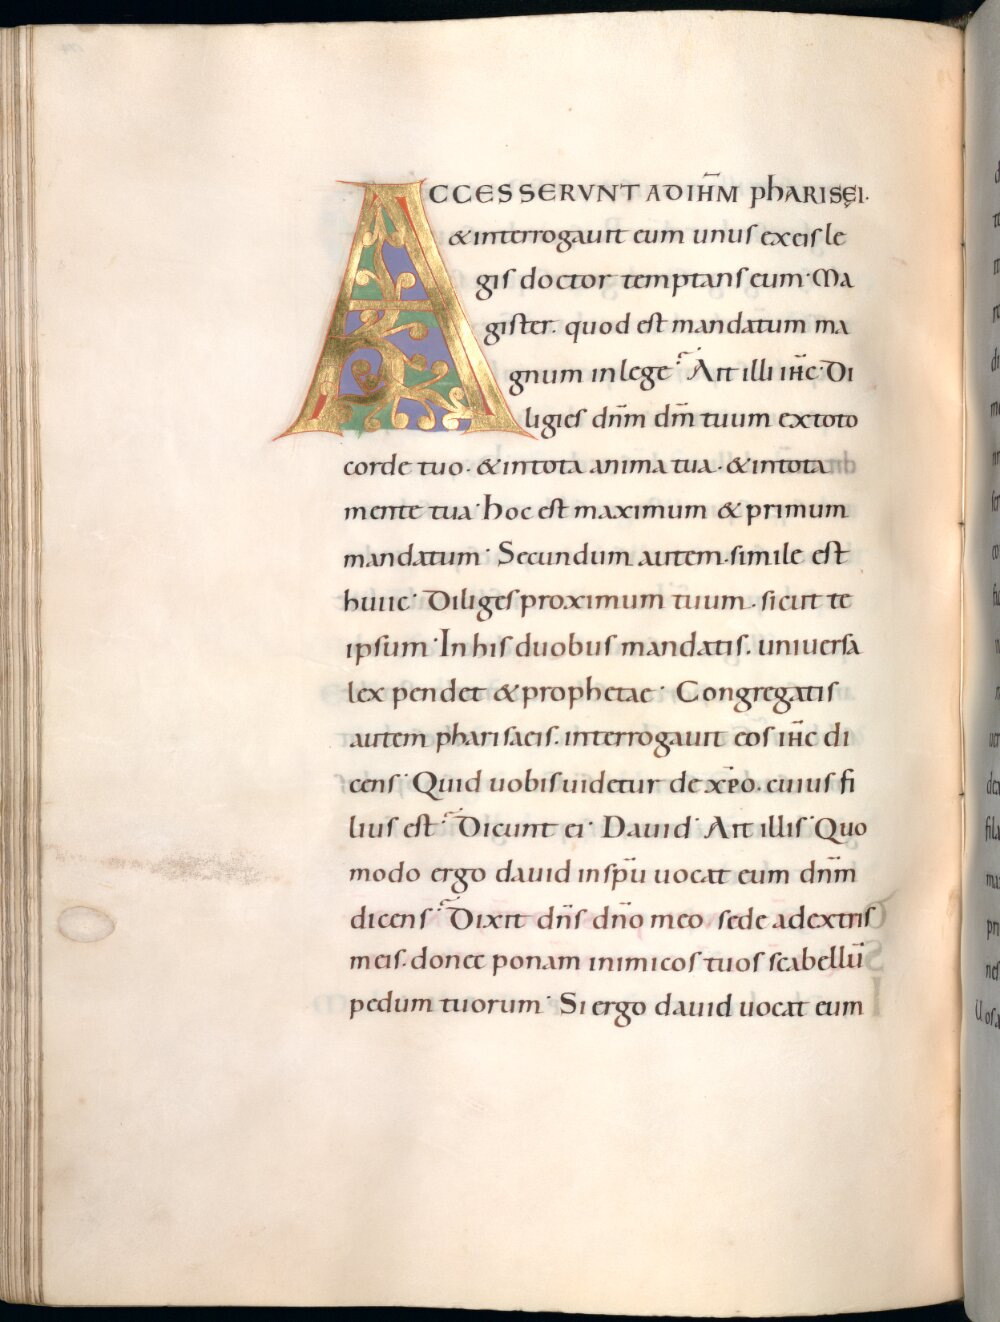 ACCESSERVNT AD IHM̅ phARISEI.
& interrogauit eum unus ex eis le
gis doctor temptans eum· Ma
gister. quod est mandatum ma
gnum in lege? Ait illi ihc̅· Di
liges dn̅m dm̅ tuum ex toto
corde tuo· & in tota anima tua· & in tota
mente tua· hoc est maximum & primum
mandatum· Secundum autem. simile est
huic· Diliges proximum tuum. sicut te
ipsum· In his duobus mandatis. uniuersa
lex pendet & prophetae· Congregatis
autem pharisaeis. interrogauit eos ihc̅ di
cens· Quid uobis uidetur de xp̅o. cuius fi
lius est? Dicunt ei· Dauid· Ait illis· Quo
modo ergo dauid in spu̅ uocat eum dn̅m
dicens? Dixit dn̅s dn̅o meo sede a dextris
meis. donec ponam inimicos tuos scabellu̅
pedum tuorum· Si ergo dauid uocat eum